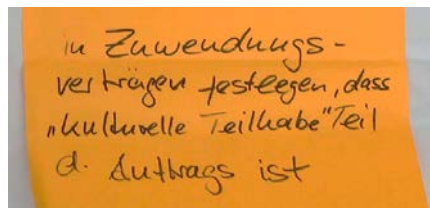 in Zuwendungs-
verträgen festlegen, dass
„kulturelle Teilhabe" Teil
d. Auftrags ist